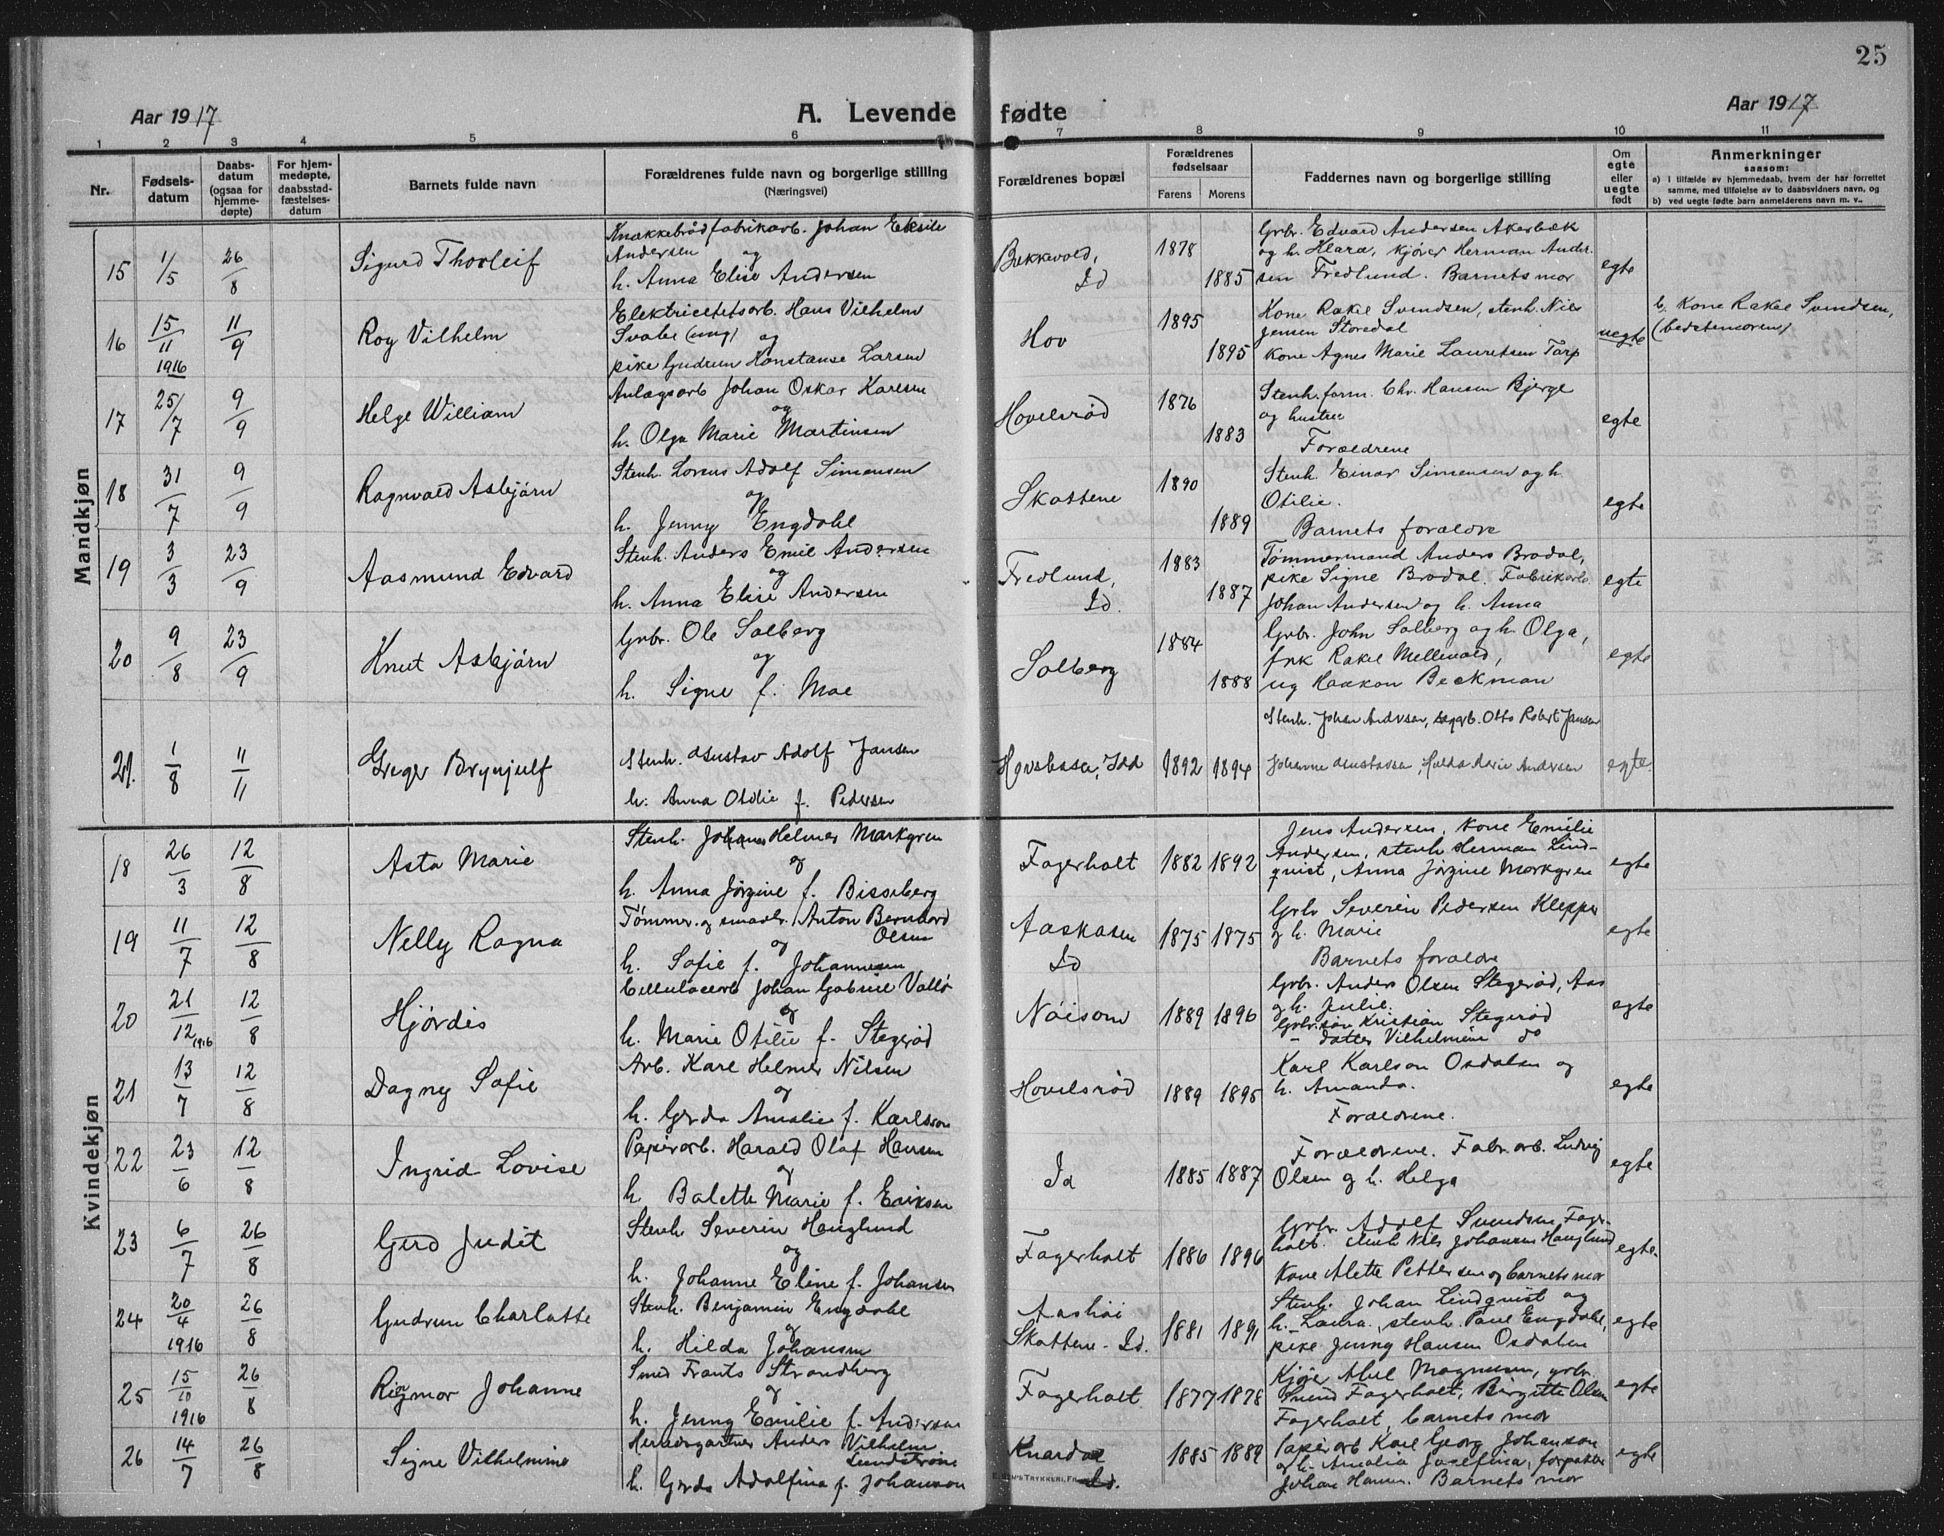 25
Aar 1917 A. Levende fødte Aar 1917
1 2 3 4 5 6 7 8 9 10 11
Nr. Fødsels-datum Daabs-datum (ogsaa for hjemme-døpte) For hjem-medøpte, daabsstad-fæstelses-datum Barnets fulde navn Forældrenes fulde navn og borgerlige stilling (Næringsvei) Forældrenes bopæl Forældrenes fødselsaar Farens Morens Faddernes navn og borgerlige stilling Om egte eller uegte født Anmerkninger saasom: a) I tilfælde av hjemmedaab, hvem der har forrettet samme, med tilføielse av to daabsvidners navn, og b) ved uegte fødte barn anmelderens navn m. v.
Mandkjøn
15 1/5 26/8 Sigurd Thorleif
Knækkebrødfabrikarb. Johan Andersen og
h. Anna Elise Andersen
Bekkevold, Id 1878 1885
Grbr. Edvard Andersen Akerbæk
og h. Klara, kjører Herman Ander-
sen Fredlund. Barnets mor egte
16 15/11 1916 11/9 Roy Vilhelm
Elektricetetsarb. Hans Vilhelm
Svabe (ung) og
pike Gudrun Konstanse Larsen
Hov 1895 1895
Kone Rakel Svendsen, stenh. Nils
Jensen Storedal
Kone Agnes Marie Lauretsen Tarp uegte
b. Kone Rakel Svendsen,
(bedstemoren)
17 25/7 9/9 Helge William
Anlægsarb Johan Oskar Karlsen
og
h. Olga Marie Martinsen
Hovelsrød 1876 1883
Stenh. form. Chr. Hansen Bjerge
og hustru
Forældrene egte
18 31/7 9/9 Ragnvald Asbjørn
Stenh. Lorens Adolf Simensen
og
h. Jenny Engdahl
Skottene 1890 1889
Stenh. Einar Simensen og h.
Otilie.
Barnets forældre egte
19 3/3 23/9 Aasmund Edvard
Stenh. Anders Emil Andersen
og
h. Anna Elise Andersen
Fredlund, Id. 1883 1887
Tømmermand Anders Brodal,
pike Signe Brodal. Fabrikarb.
Johan Andersen og h. Anna egte
20 9/8 23/9 Knut Asbjørn
Grbr. Ole Solberg
og
h. Signe f. Moe
Solberg 1884 1888
Grbr. John Solberg og h. Olga,
frk Rakel Mellevold,
ug Haakon Beckman egte
21. 1/8 11/11 Greger Brynjulf
Stenh. Gustav Adolf Jansen
h. Anna Otilie f. Pedersen
Id 1892 1894
Stenh. Johan Andersen, Otto Robert Jansen
Johanne Gustavsen, Hulda Marie Andersen egte.
Kvindekjøn
18 26/3 12/8 Asta Marie
Stenh. Johannes Helmer Markgren
og
h. Anna Jørgine f. Bisseberg
Fagerholt 1882 1892
Jens Andersen, kone Emilie
Andersen, stenh Herman Lind-
qvist, Anna Jørgine Markgren egte
19 11/7 12/8 Nelly Ragna
Tømmer. og smaabr. Anton Bernhard
Olsen og
h. Sofie f. Johannesen
Aaskasen Id 1875 1875
Grbr Severin Pedersen Kleppe
og h. Marie
Barnets forældre egte
20 21/12 1916 12/8 Hjørdis
Cellulosearb Johan Gabriel Vallø
og
h. Marie Otilie f. Stegerød
Nøisom 1889 1896
Grbr. Anders Olsen Stegerød, Aas
og h. Julie.
Grbr.søn Kristian Stegerød
– datter Vilhelmine do egte
21 13/7 12/8 Dagny Sofie
Arb. Karl Helmer Nilsen
og
h. Gerda Amalie f. Karlsson
Hovelsrød 1889 1895
Karl Karlson Osdalen og
h. Amanda.
Forældrene. egte
22 23/6 12/8 Ingrid Lovise
Papirarb. Harald Olaf Hansen
og
h Bolette Marie f. Eriksen
Id 1885 1887
Forældrene. Fabr.arb. Ludvig
Olsen og h. Helga egte
23 6/7 26/8 Gerd Judit
Stenh. Severin Hauglund
og
h. Johanne Eline f. Johansen
Fagerholt 1886 1896
Grbr. Adolf Svendsen Fager-
holt. stenh Nils Johansen Hauglund
Kone Alette Pettersen og barnets mor egte
24 20/4 1916 26/8 Gudrun Charlotte
Stenh. Benjamin Engdahl
og
h. Hilda Johansen
Aashøi
Skottene - Id. 1881 1891
Stenh. Johan Lindqvist og
h. Laura, stenh. Paul Engdahl,
pike Jenny Hansen Osdalen egte
25 15/10 1916 26/8 Rigmor Johanne
Smed Frants Strandberg
og
h. Jenny Emilie f. Andersen
Fagerholt 1877 1878
Kjøb. Abel Magnusen, grbr.
Svend Fagerholt, Birgitte Olsen
Fagerholt, barnets mor egte
26 14/7 26/8 Signe Vilhelmine
Herredsgartner Anders Vilhelm
Lundstrøm
h. Gerda Adolfina f. Johansson
Knardal Id. 1885 1889
Papirarb Karl Georg Johanson
og h. Amalia Josefina, forpakter
Johan Hansen. Barnets mor egte